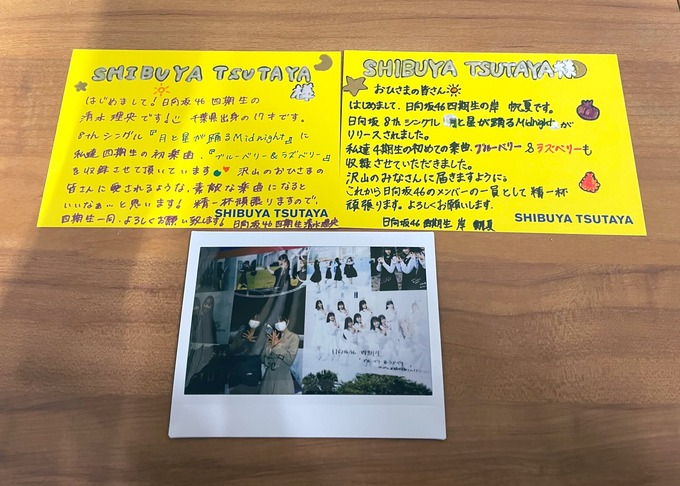 SHIBUYA TSUTAYA
様
はじめまして!日向坂46四期生の
清水理央です! 千葉県出身の17才です。
8thシングル『月と星が踊るMidnight』に
私達四期生の初楽曲、『ブルーベリー&ラズベリー』
を収録させて頂いています 沢山のおひさまの
皆さんに愛されるような、素敵な楽曲になると
いいなぁ…と思います! 精一杯頑張りますので、
四期生一同、よろしくお願い致します! 日向坂46四期生清水理央
SHIBUYA TSUTAYA
SHIBUYA TSUTAYA様
おひさまの皆さん
はじめまして、日向坂46四期生の岸 帆夏です。
日向坂 8thシングル『月と星が踊るMidnight』が
リリースされました。
私達4期生の初めての楽曲、ブルーベリー&ラズベリーも
収録させていただきました。
沢山のみなさんに届きますように。
これから日向坂46のメンバーの一員として精一杯
頑張ります。よろしくお願いします。
日向坂46 四期生 岸 帆夏
SHIBUYA TSUTAYA
日向坂46 四期生
ブルーベリー&ラズベリー